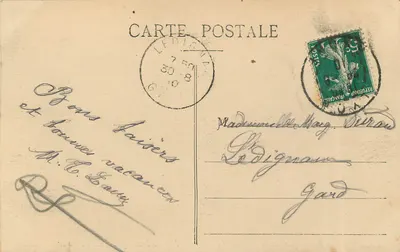 CARTE POSTALE
LEDIGNAN
7 50
30 - 8
10
G
Bons baisers
et bonnes vacances
Mademoiselle Durand
Lédignan
Gard